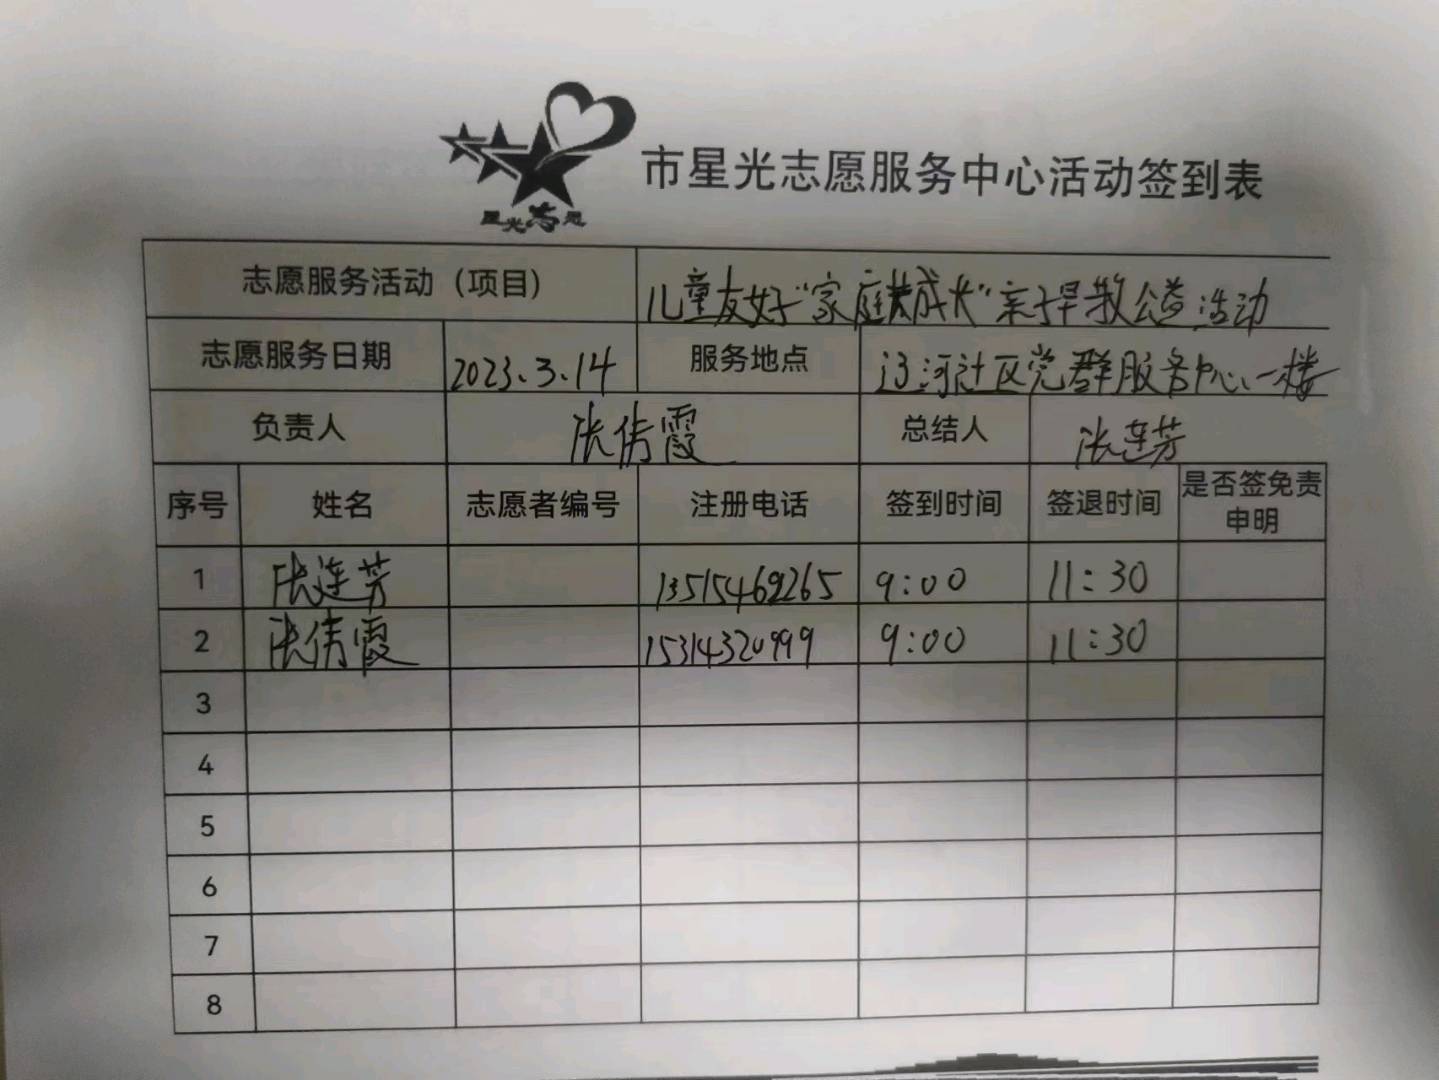 星光志愿
市星光志愿服务中心活动签到表
志愿服务活动（项目） 儿童友好“家庭成长”亲子早教公益活动
志愿服务日期 2023.3.14 服务地点 辽河社区党群服务中心一楼
负责人 张倩霞 总结人 张连芳
序号 姓名 志愿者编号 注册电话 签到时间 签退时间 是否签免责
申明
1 张连芳 13515469265 9:00 11:30
2 张倩霞 15314320999 9:00 11:30
3
4
5
6
7
8